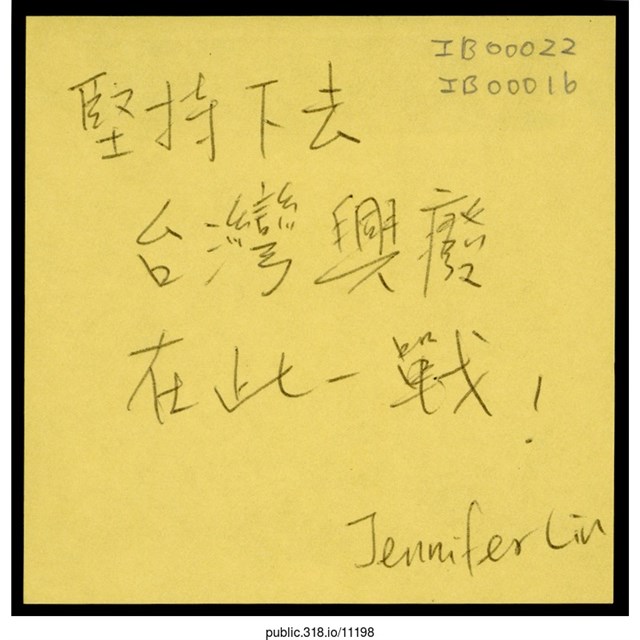 IB00022
IB00016
堅持下去
台灣興廢
在此一戰！
Jennifer Lin
public.318.io/11198